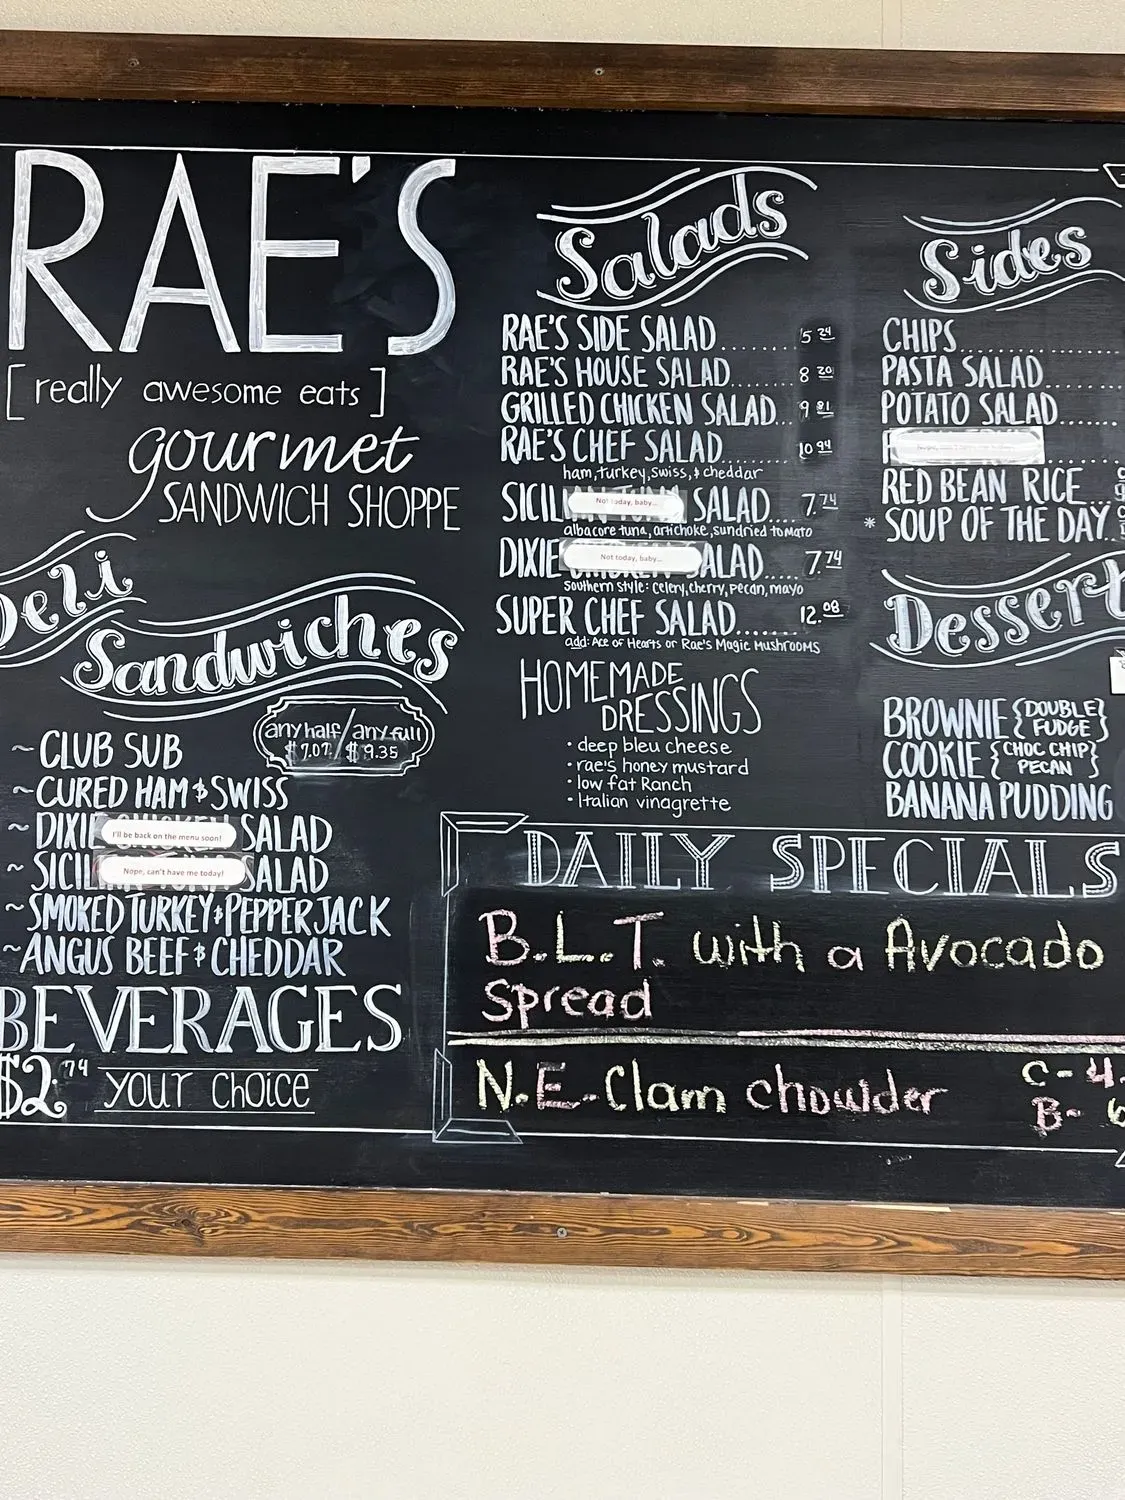 RAE'S
[really awesome eats]
gourmet
SANDWICH SHOPPE
Deli
Sandwiches
any half/any full
$7.07/$9.35
~ CLUB SUB
~ CURED HAM & SWISS
~ DIXIE SALAD
I'll be back on the menu soon!
~ SICILIAN TUNA SALAD
Nope, can't have me today!
~ SMOKED TURKEY & PEPPER JACK
~ ANGUS BEEF & CHEDDAR
BEVERAGES
$2.74 your choice
Salads
RAE'S SIDE SALAD........ 5 24
RAE'S HOUSE SALAD....... 8 20
GRILLED CHICKEN SALAD... 9 81
RAE'S CHEF SALAD........ 10 94
ham, turkey, swiss, & cheddar
SICILIAN TUNA SALAD.... 7.74
Not today, baby...
albacore tuna, artichoke, sundried tomato
DIXIE CHICKEN SALAD..... 7.74
Not today, baby...
Southern style: celery, cherry, pecan, mayo
SUPER CHEF SALAD....... 12.08
add: Ace of Hearts or Rae's Magic Mushrooms
HOMEMADE
DRESSINGS
• deep bleu cheese
• rae's honey mustard
• low fat Ranch
• Italian vinagrette
Sides
CHIPS
PASTA SALAD
POTATO SALAD
RED BEAN RICE
* SOUP OF THE DAY
Dessert
BROWNIE {DOUBLE FUDGE}
COOKIE {CHOC CHIP PECAN}
BANANA PUDDING
DAILY SPECIALS
B.L.T. with a Avocado
Spread
N.E. Clam chowder
C - 4.
B - 6